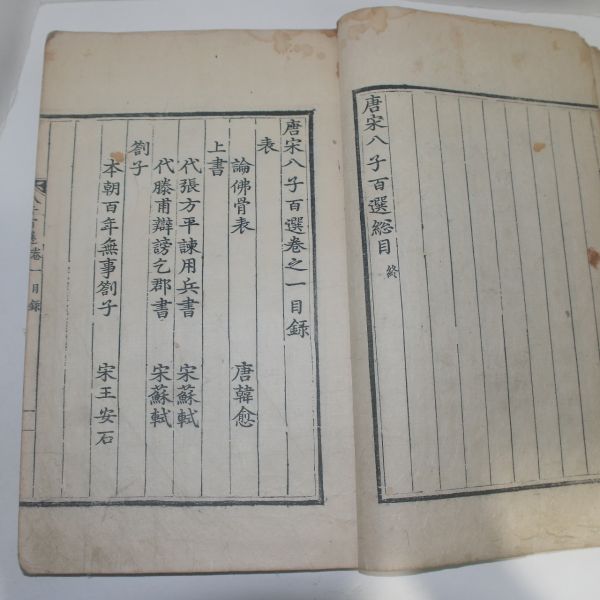 唐宋八子百選総目 終
唐宋八子百選卷之一目録
表
論佛骨表 唐韓愈
上書
代張方平諫用兵書 宋蘇軾
代滕甫辯謗乞郡書 宋蘇軾
劄子
本朝百年無事劄子 宋王安石
八子百選 卷一目録